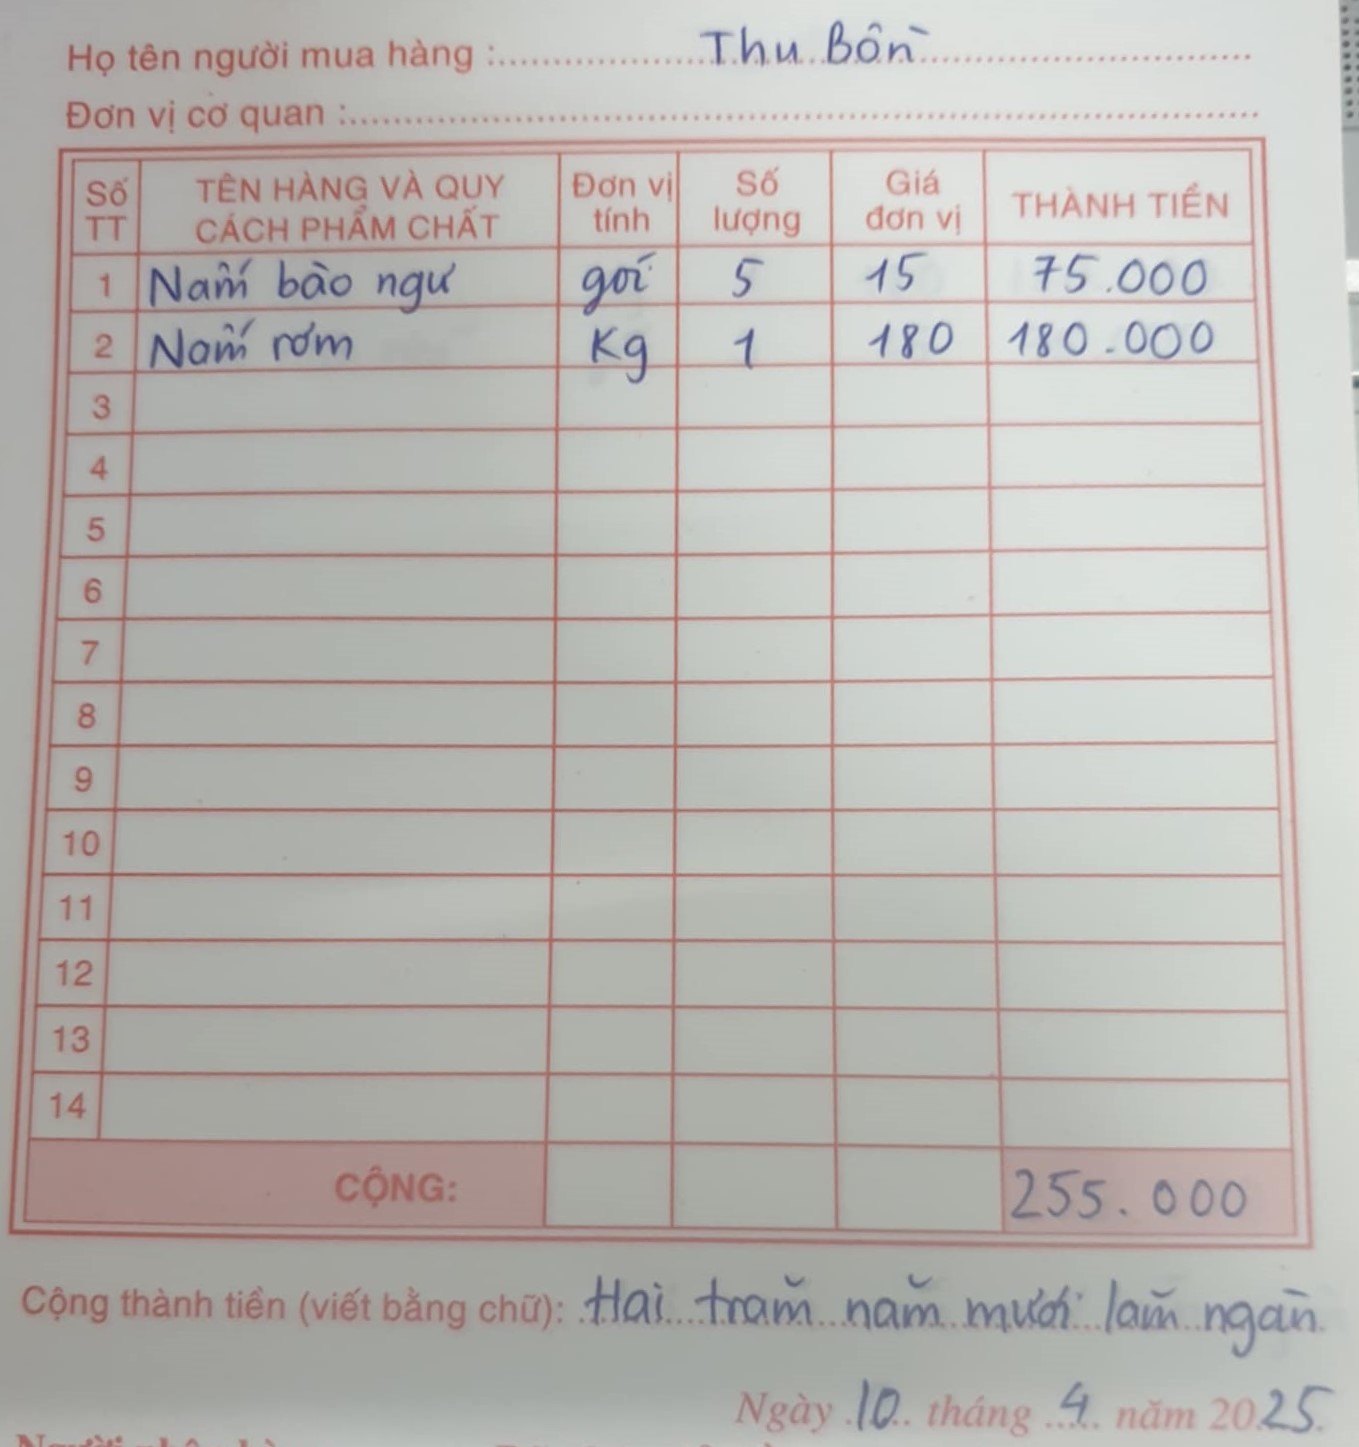 Họ tên người mua hàng : Thu Bồn
Đơn vị cơ quan :
Số TT TÊN HÀNG VÀ QUY CÁCH PHẨM CHẤT Đơn vị tính Số lượng Giá đơn vị THÀNH TIỀN
1 Nấm bào ngư gói 5 15 75.000
2 Nấm rơm Kg 1 180 180.000
3
4
5
6
7
8
9
10
11
12
13
14
CỘNG: 255.000
Cộng thành tiền (viết bằng chữ): Hai trăm năm mươi lăm ngàn
Ngày 10 tháng 4 năm 2025